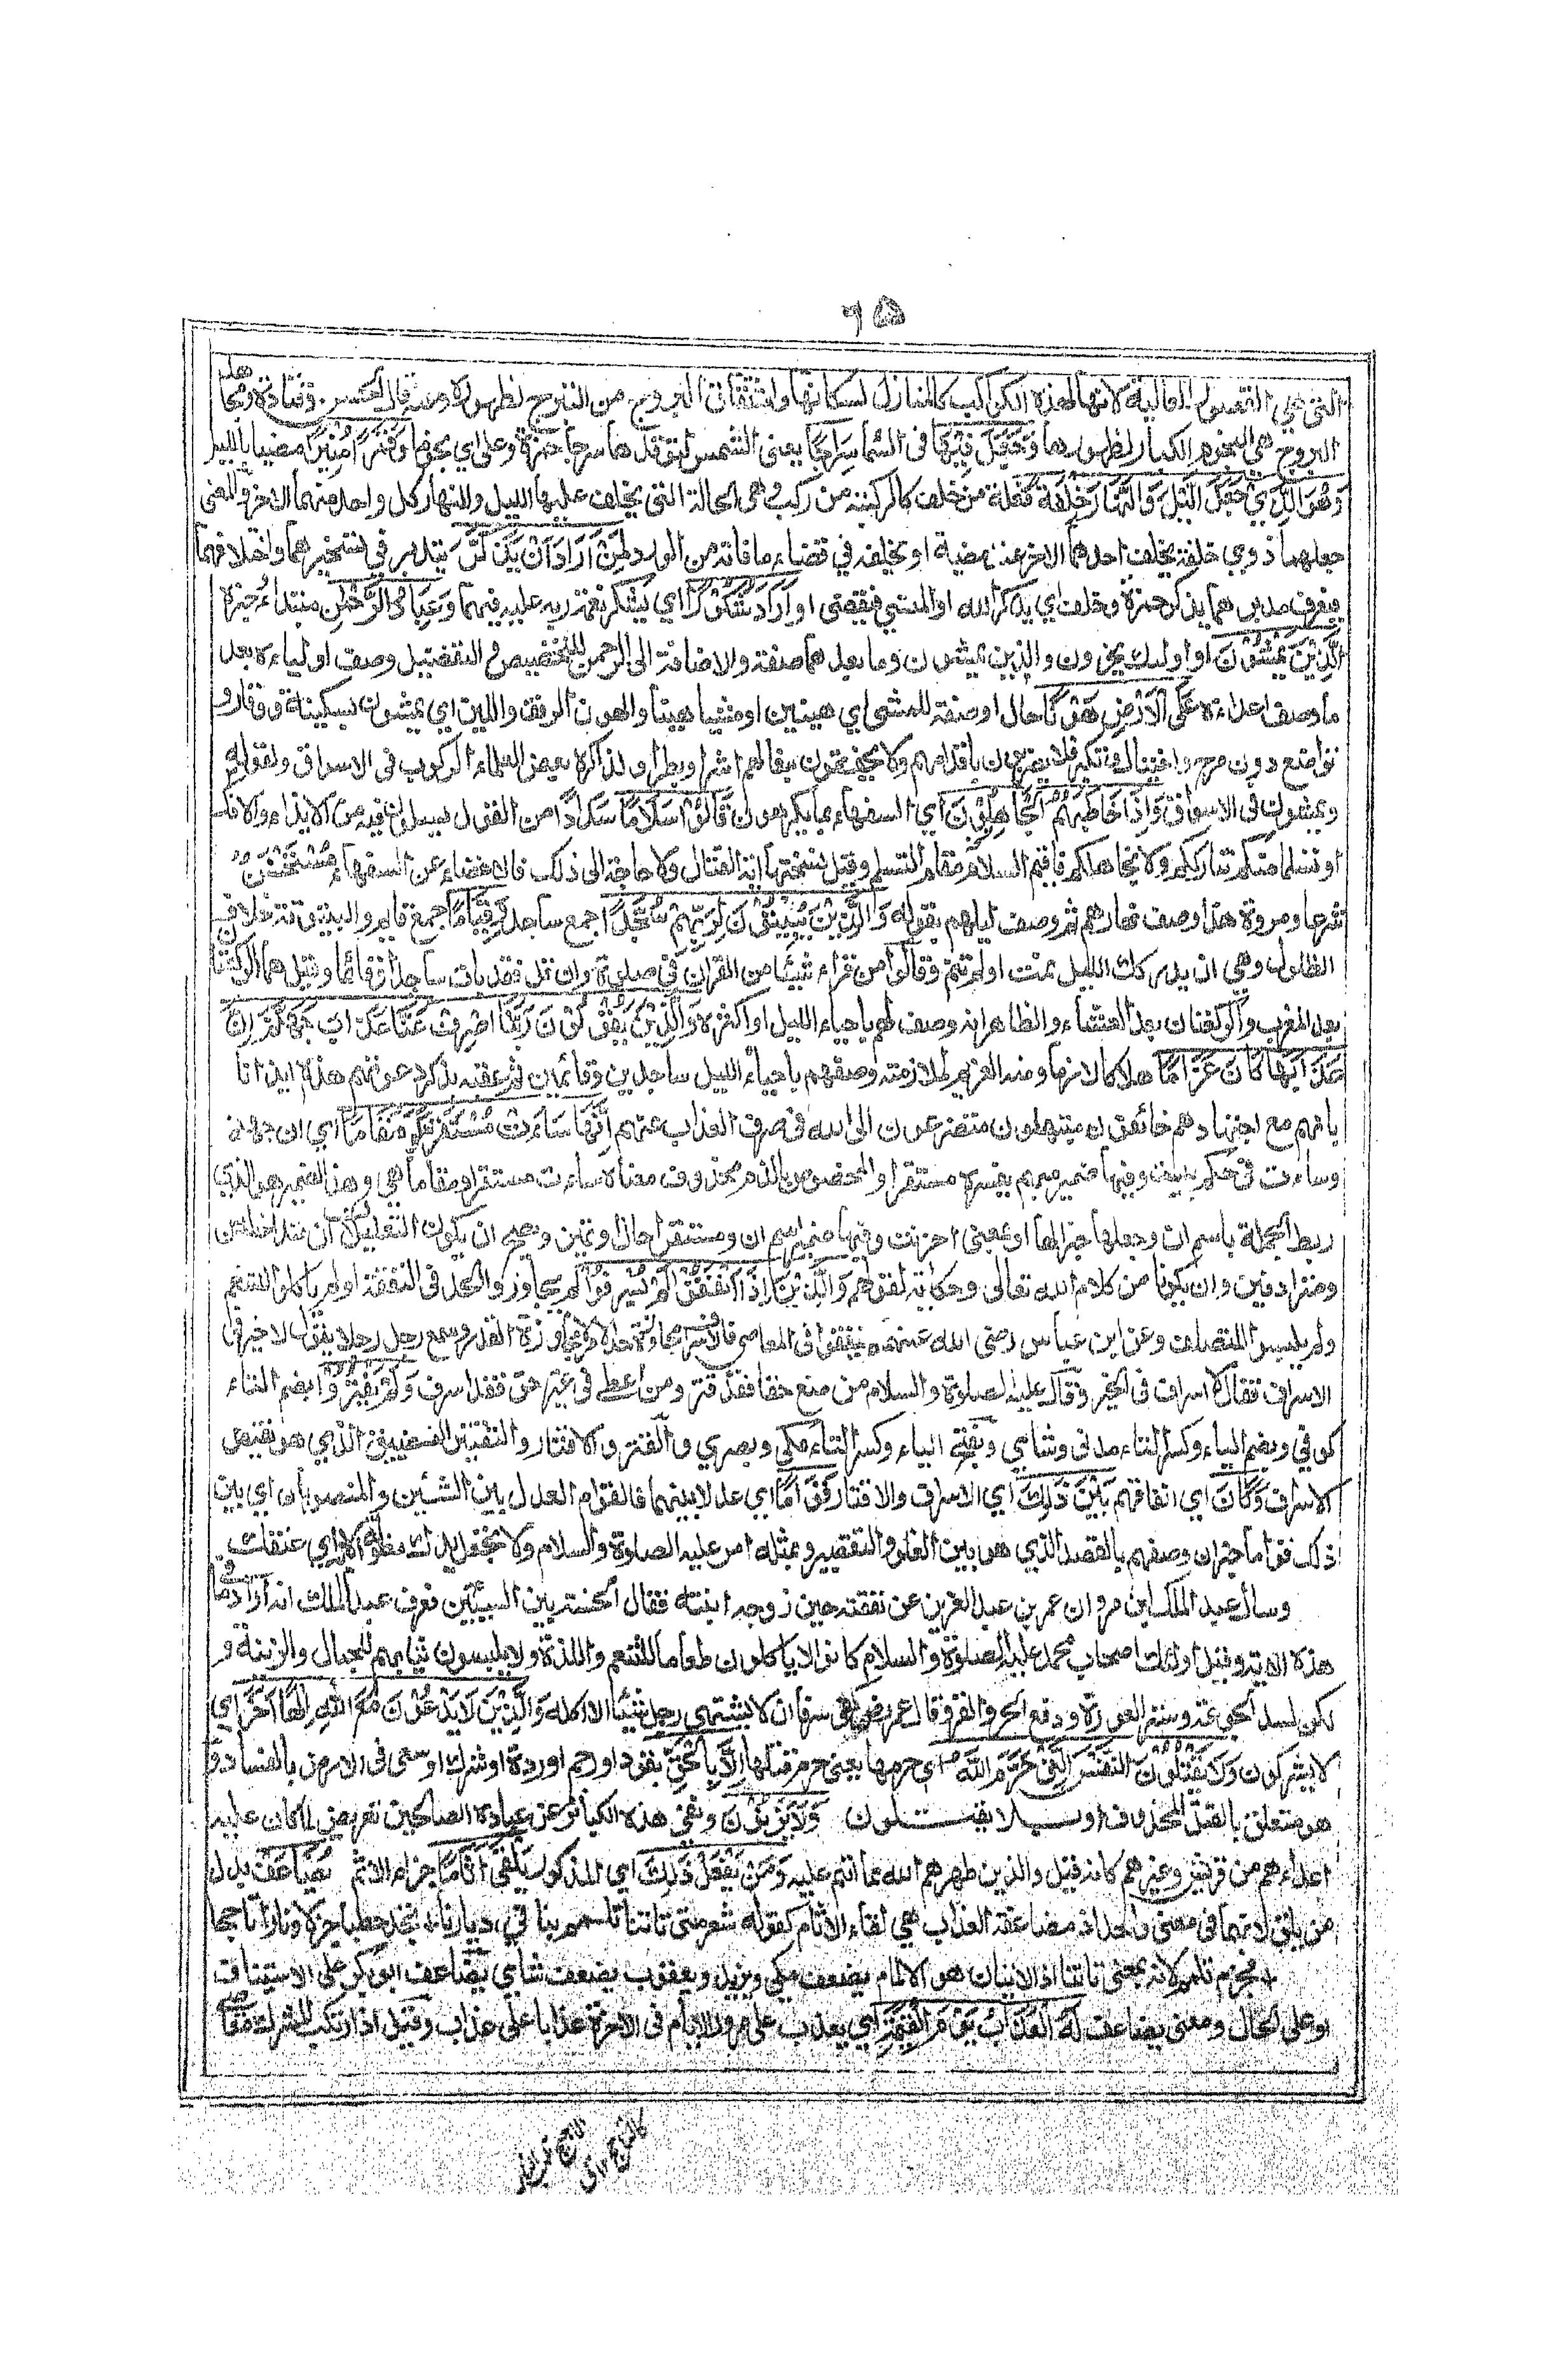 التي هي القصور العالية لانها لهذه الكواكب كالمنازل لسكانها واشتقاق البروج من التبرج لظهوره وقال الحسن وقتادة ومجاهد
البروج هي النجوم الكبار لظهورها وَجَعَلَ فِيْهَا في السماء سِرَاجًا يعني الشمس لتوقدها سرجا حمزة وعلي اي نجوما وَقَمَرًا مُّنِيْرًا مضيئا بالليل
وَهُوَ الَّذِيْ جَعَلَ الَّيْلَ وَالنَّهَارَ خِلْفَةً فعلة من خلف كالركبة من ركب وهي الحالة التي يخلف عليها الليل والنهار كل واحد منهما الاخر والمعنى
جعلهما ذوي خلفة يخلف احدهما الاخر عند مضيه او يخلفه في قضاء ما فاته من الورد لِمَنْ اَرَادَ اَنْ يَّذَّكَّرَ يتدبر في تسخيرهما واختلافهما
فيعرف مدبرهما يذكر حمزة وخلف اي يذكر الله او المنسي فيقضي اَوْ اَرَادَ شُكُوْرًا اي يشكر نعمة ربه عليه فيهما وَعِبَادُ الرَّحْمٰنِ مبتداء خبره
الَّذِيْنَ يَمْشُوْنَ او اولئك يجزون والذين يمشون وما بعدهما صفة والاضافة الى الرحمن للتخصيص والتفضيل وصف اولياءه بعد
ما وصف اعداءه عَلَى الْاَرْضِ هَوْنًا حال او صفة للمشي اي هينين او مشيا هينا والهون الرفق واللين اي يمشون بسكينة ووقار و
تواضع دون مرح واختيال وتكبر فلا يضربون باقدامهم ولا يخفقون بنعالهم اشرا وبطرا ولذا كره بعض العلماء الركوب في الاسواق ولقوله
ويمشون في الاسواق وَاِذَا خَاطَبَهُمُ الْجَاهِلُوْنَ اي السفهاء بما يكرهون قَالُوْا سَلَامًا سدادا من القول يسلمون فيه من الايذاء والافك
او تسلما منكم نتارككم ولا نجاهلكم فاقيم السلام مقام التسلم وقيل نسختها اية القتال ولا حاجة الى ذلك فالاغضاء عن السفهاء مستحسن
شرعا ومروة هذا وصف نهارهم ثم وصف ليلهم بقوله وَالَّذِيْنَ يَبِيْتُوْنَ لِرَبِّهِمْ سُجَّدًا جمع ساجد وَّقِيَامًا جمع قايم والبيتوتة خلاف
الظلول وهي ان يدركك الليل نمت او لم تنم وقالوا من قراء شيئا من القران في صلوة وان قل فقد بات ساجدا وقائما وقيل هما الركعتان
بعد المغرب والركعتان بعد العشاء والظاهر انه وصف لهم باحياء الليل او اكثره وَالَّذِيْنَ يَقُوْلُوْنَ رَبَّنَا اصْرِفْ عَنَّا عَذَابَ جَهَنَّمَ اِنَّ
عَذَابَهَا كَانَ غَرَامًا هلاكا لازما ومنه الغريم لملازمته وصفهم باحياء الليل ساجدين وقائمين ثم عقبه بذكر دعوتهم هذه ايذانا
بانهم مع اجتهادهم خائفون مبتهلون متضرعون الى الله في صرف العذاب عنهم اِنَّهَا سَاءَتْ مُسْتَقَرًّا وَّمُقَامًا اي ان جهنم
وساءت في حكم بئست وفيها ضمير مبهم يفسره مستقرا والمخصوص بالذم محذوف معناه ساءت مستقرا ومقاما هي وهذا الضمير هو الذي
ربط الجملة باسم ان وجعلها خبرا لها او بمعنى احزنت وفيها ضمير اسم ان ومستقرا حال او تميز ويصح ان يكون التعليلان متداخلين
ومترادفين وان يكونا من كلام الله تعالى وحكاية لقولهم وَالَّذِيْنَ اِذَا اَنْفَقُوْا لَمْ يُسْرِفُوْا لم يجاوزوا الحد في النفقة او لم ياكلوا للتنعم
ولم يلبسوا للتصلف وعن ابن عباس رضي الله عنهما لم ينفقوا في المعاصي فالاسراف مجاوزة حد الامر لا مجاوزة القدر وسمع رجل رجلا يقول لا خير في
الاسراف فقال لا اسراف في الخير وقال عليه الصلوة والسلام من منع حقا فقد قتر ومن اعطى في غير حق فقد اسرف وَلَمْ يَقْتُرُوْا بضم التاء
كوفي وبضم الياء وكسر التاء مدني وشامي وبفتح الياء وكسر التاء مكي وبصري والقتر والاقتار والتقتير التضييق الذي هو نقيض
الاسراف وَكَانَ اي انفاقهم بَيْنَ ذٰلِكَ اي الاسراف والاقتار قَوَامًا اي عدلا بينهما فالقوام العدل بين الشيئين والمنصوبان اي بين
ذلك قواما خبران وصفهم بالقصد الذي هو بين الغلو والتقصير وبمثله امر عليه الصلوة والسلام ولا تجعل يدك مغلولة الاية الى عنقك
وسأل عبد الملك ابن مروان عمر بن عبد العزيز عن نفقته حين زوجه ابنته فقال الحسنة بين السيئتين فعرف عبد الملك انه اراد ما في
هذه الاية وقيل اولئك اصحاب محمد عليه الصلوة والسلام كانوا لا ياكلون طعاما للتنعم واللذة ولا يلبسون ثيابهم للجمال والزينة و
لكن لسد الجوعة وستر العورة ودفع الحر والقر وقال عمر رض كفى سرفا ان لا يشتهي رجل شيئا الا اكله وَالَّذِيْنَ لَا يَدْعُوْنَ مَعَ اللّٰهِ اِلٰهًا اٰخَرَ اي
لا يشركون وَلَا يَقْتُلُوْنَ النَّفْسَ الَّتِيْ حَرَّمَ اللّٰهُ اي حرمها يعني حرم قتلها اِلَّا بِالْحَقِّ بقود او رجم او ردة او شرك او سعى في الارض بالفساد و
هو متعلق بالقتل المحذوف او بـلا يقتـلون وَلَا يَزْنُوْنَ ونفي هذه الكبائر عن عباده الصالحين تعريض لما كان عليه
اعداءهم من قريش وغيرهم كانه قيل والذين طهرهم الله مما انتم عليه وَمَنْ يَّفْعَلْ ذٰلِكَ اي المذكور يَلْقَ اَثَامًا جزاء الاثم يُضَاعَفْ بدل
من يلق لانهما في معنى واحد اذ مضاعفة العذاب هي لقاء الاثام كقوله شعر متى تاتنا تلمم بنا في ديارنا، تجد حطبا جزلا ونارا تاججا
فجزم تلمم لانه بمعنى تاتنا اذ الاتيان هو الالمام يضعف مكي ويزيد ويعقوب يضعف شامي يضاعف ابو بكر على الاستيناف
او على الحال ومعنى يضاعف لَهُ الْعَذَابُ يَوْمَ الْقِيٰمَةِ اي يعذب على مرور الايام في الاخرة عذابا على عذاب وقيل اذا ارتكب المشرك معاصي